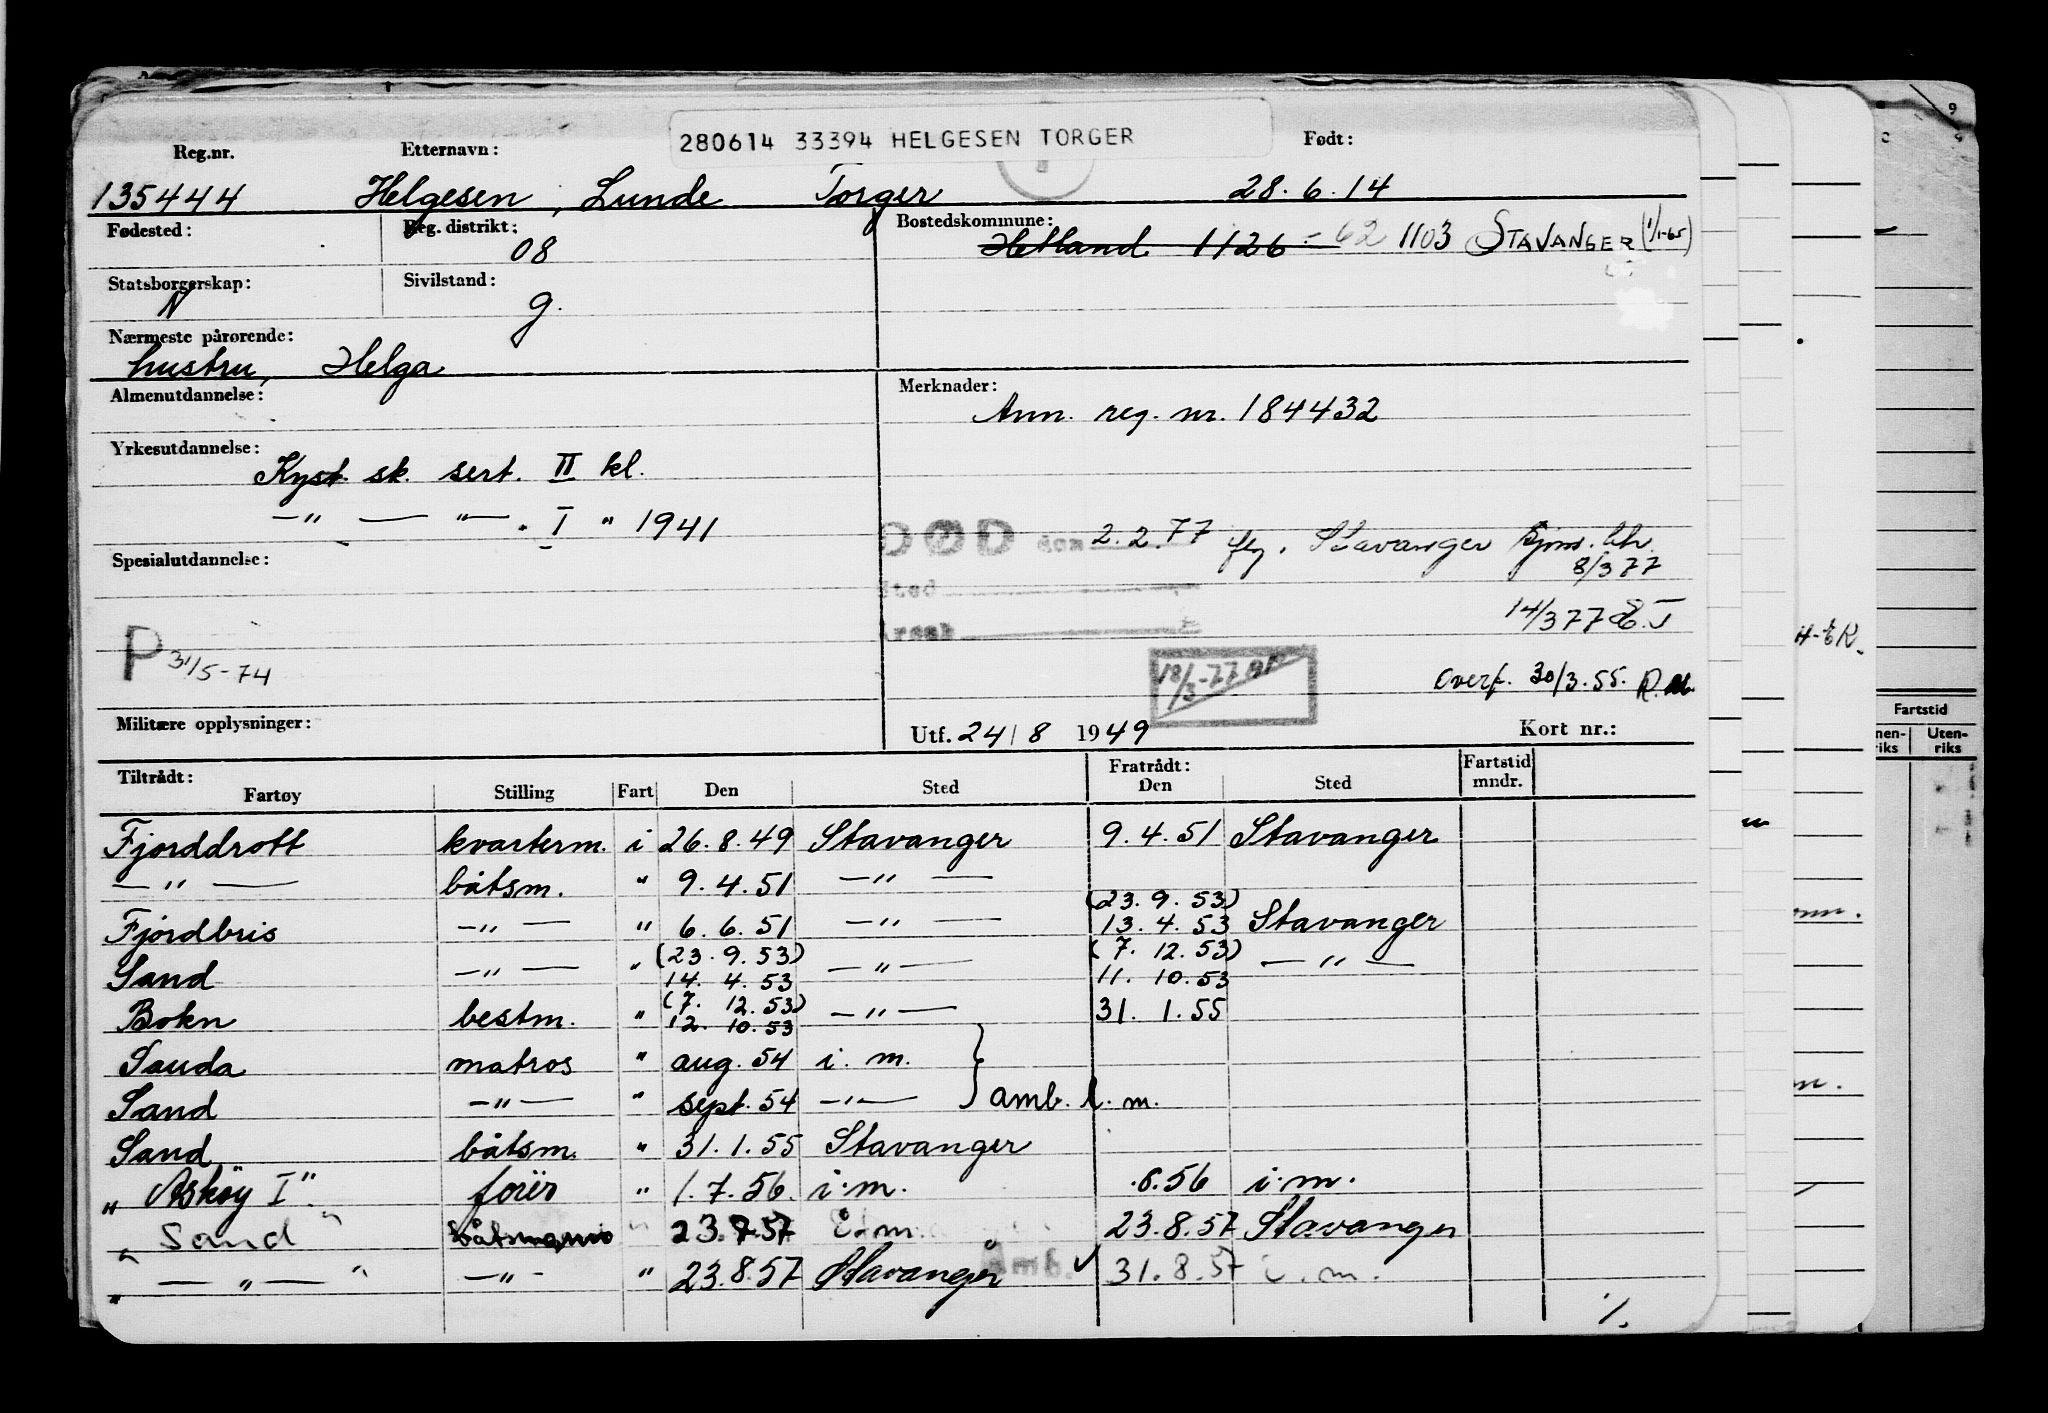 280614 33394 HELGESEN TORGER
Reg.nr. Etternavn: Født:
135444 Helgesen, Lunde Torger 28.6.14
Fødested: Reg. distrikt: Bostedskommune:
08 Hetland 1126 - 62 1103 STAVANGER (1/1-65)
Statsborgerskap: Sivilstand:
N g.
Nærmeste pårørende:
hustru, Helga
Almenutdannelse: Merknader:
Ann. reg. nr. 184432
Yrkesutdannelse:
Kyst. sk. sert. II kl.
—"— —"— . I " 1941
DØD den 2.2.77 flg. Stavanger Sjøm. ktr.
8/3 77
Spesialutdannelse:
Sted
14/3 77 E.T
Årsak
P 31/5-74
18/3-77
Overf. 30/3.55. R.M.
Militære opplysninger: Utf. 24/8 1949 Kort nr.:
Tiltrådt: Fratrådt: Fartstid
Fartøy Stilling Fart Den Sted Den Sted mndr.
Fjorddrott kvarterm. i 26.8.49 Stavanger 9.4.51 Stavanger
—"— båtsm. " 9.4.51 —"—
(23.9.53)
Fjordbris —"— " 6.6.51 —"— 13.4.53 Stavanger
(23.9.53) (7.12.53)
Sand —"— " 14.4.53 —"— 11.10.53 —"—
(7.12.53)
Bokn bestm. " 12.10.53 —"— 31.1.55
Sauda matros " aug. 54 i.m.
Sand —"— " sept. 54 —"— } amb. l.m.
Sand båtsm. " 31.1.55 Stavanger
"Askøy I" fører " 1.7.56. i.m. .8.56 i.m.
"Sand" båtsmann " 23.7.57 i.m. 23.8.57 Stavanger
"—"—" —"— " 23.8.57 Stavanger Amb. ✓ 31.8.57 i.m.
./.
H-ER.
Fartstid
Uten-
riks